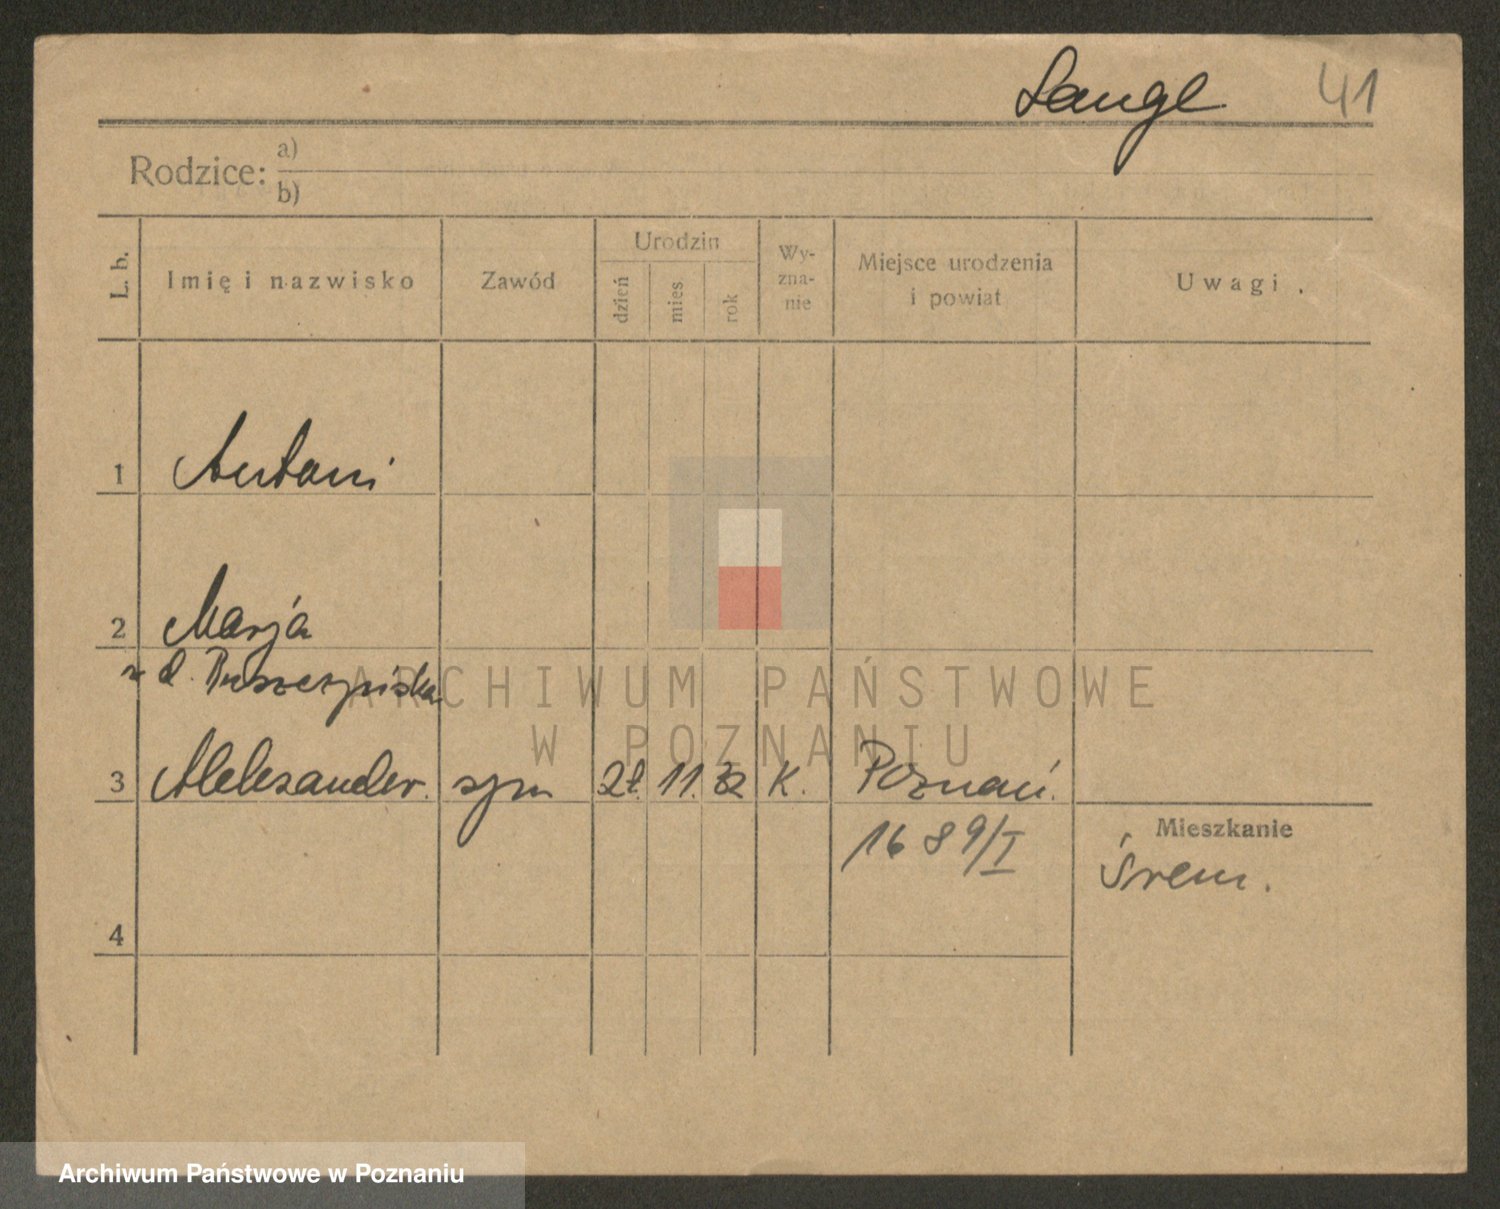 Lange 41
Rodzice: a)
b)
L. b. Imię i nazwisko Zawód Urodzin dzień mies. rok Wy-zna-nie Miejsce urodzenia i powiat Uwagi
1 Antoni
2 Marja
z d.
ARCHIWUM PAŃSTWOWE
W POZNANIU
3 Aleksander. syn 11. 32 K. Poznań.
1689/I
Mieszkanie
Śrem.
4
Archiwum Państwowe w Poznaniu